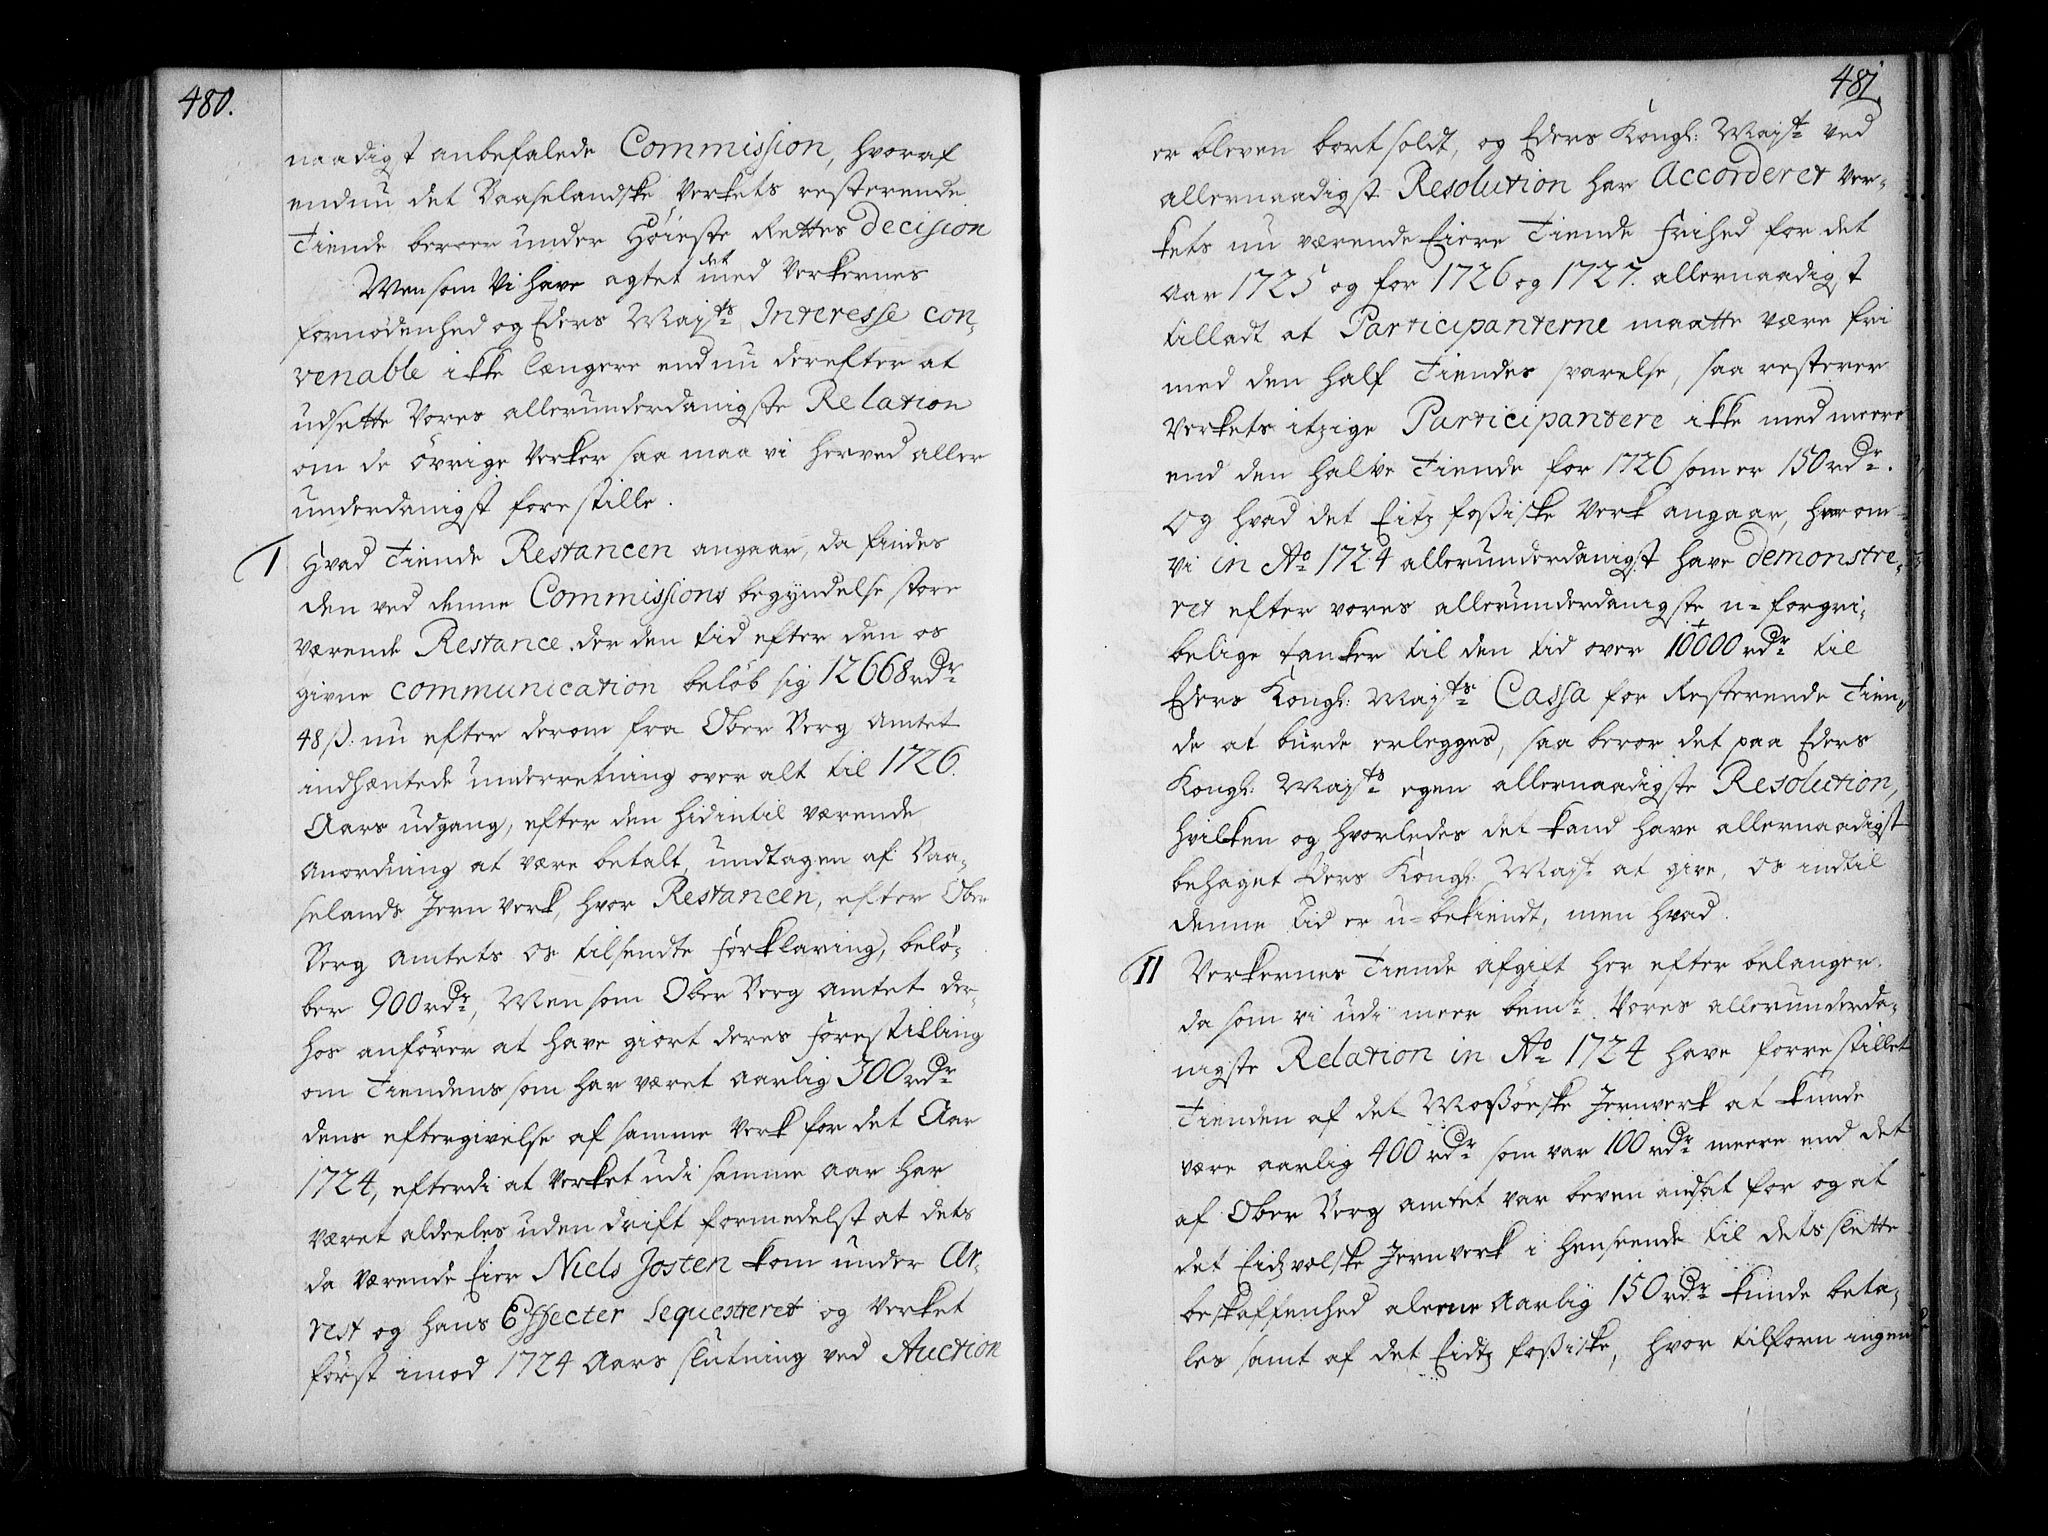 480.
naadigst anbefalede Commission, hvoraf
endnu det Baaselandske Verkets resterende
Tiende beroer under Høieste Rettes Decision
Men som Vi have agtet det med Verkernes
fornødenhed og Eders Majts Interesse con-
venable ikke længere endnu derefter at
udsette Vores allerunderdanigste Relation
om de øvrige Verker saa maa vi herved aller
underdanigst forestille.
I Hvad Tiende Restancen angaar, da findes
den ved denne Commissions begyndelse store
værende Restance der den tid efter den os
givne communication beløb sig 12668 rdr
48 ß. nu efter derom fra Ober Berg Amtet
indhæntede underretning over alt til 1726.
Aars udgang, efter den hidintil værende
Anordning at være betalt, undtagen af Baa-
selands Jern Verk, hvor Restancen, efter Ober
Berg Amtets os tilsendte forklaring, belø-
ber 900 rdr, Men som Ober Berg Amtet der-
hos anfører at have giort deres forestilling
om Tiendens som har været Aarlig 300 rdr
dens eftergivelse af samme Verk for det Aar
1724, efterdi at Verket udi samme Aar har
været aldeeles uden drift formedelst at dets
da værende Eier Niels Josten kom under Ar-
rest og hans Effecter Sequestreret og Verket
først imod 1724 Aars slutning ved Auction
481.
er bleven bortsoldt, og Eders Kongl: Majt ved
allernaadigst Resolution har Accorderet Ver-
kets nu værende Eiere Tiende frihed for det
Aar 1725 og for 1726 og 1727. allernaadigst
tilladt at Participanterne maatte være fri
med den half Tiendes svarelse, saa resterer
Verkets itzige Participantere ikke med meere
end den halve Tiende for 1726 som er 150 rdr.
Og hvad det Eitz foßiske Verk angaar, hvorom
Vi in Ao 1724 allerunderdanigst have demonstre-
ret efter vores allerunderdanigste u-forgri-
belige tanker til den tid over 10000 rdr til
Eders Kongl: Majts Cassa for Resterende Tien-
de at burde erlegges, saa beroer det paa Eders
Kongl: Majts egen allernaadigste Resolution,
hvilken og hvorledes det kand have allernaadigst
behaget Eders Kongl: Majt at give, os indtil
denne tid er u-bekiendt, men hvad.
II Verkernes Tiende Afgift her efter belanger.
da som vi udi meer bemte Vores allerunderda-
nigste Relation in Ao 1724 have forrestillet
Tienden af det Moßøeske Jernverk at kunde
være aarlig 400 rdr som var 100 rdr meere end det
af Ober Berg Amtet var beven andsat for og at
det Eidzvolske Jernverk i henseende til dets slette
beskaffenhed alene Aarlig 150 rdr kunde beta-
les samt af det Eidtz foßiske, hvor tilforn ingen